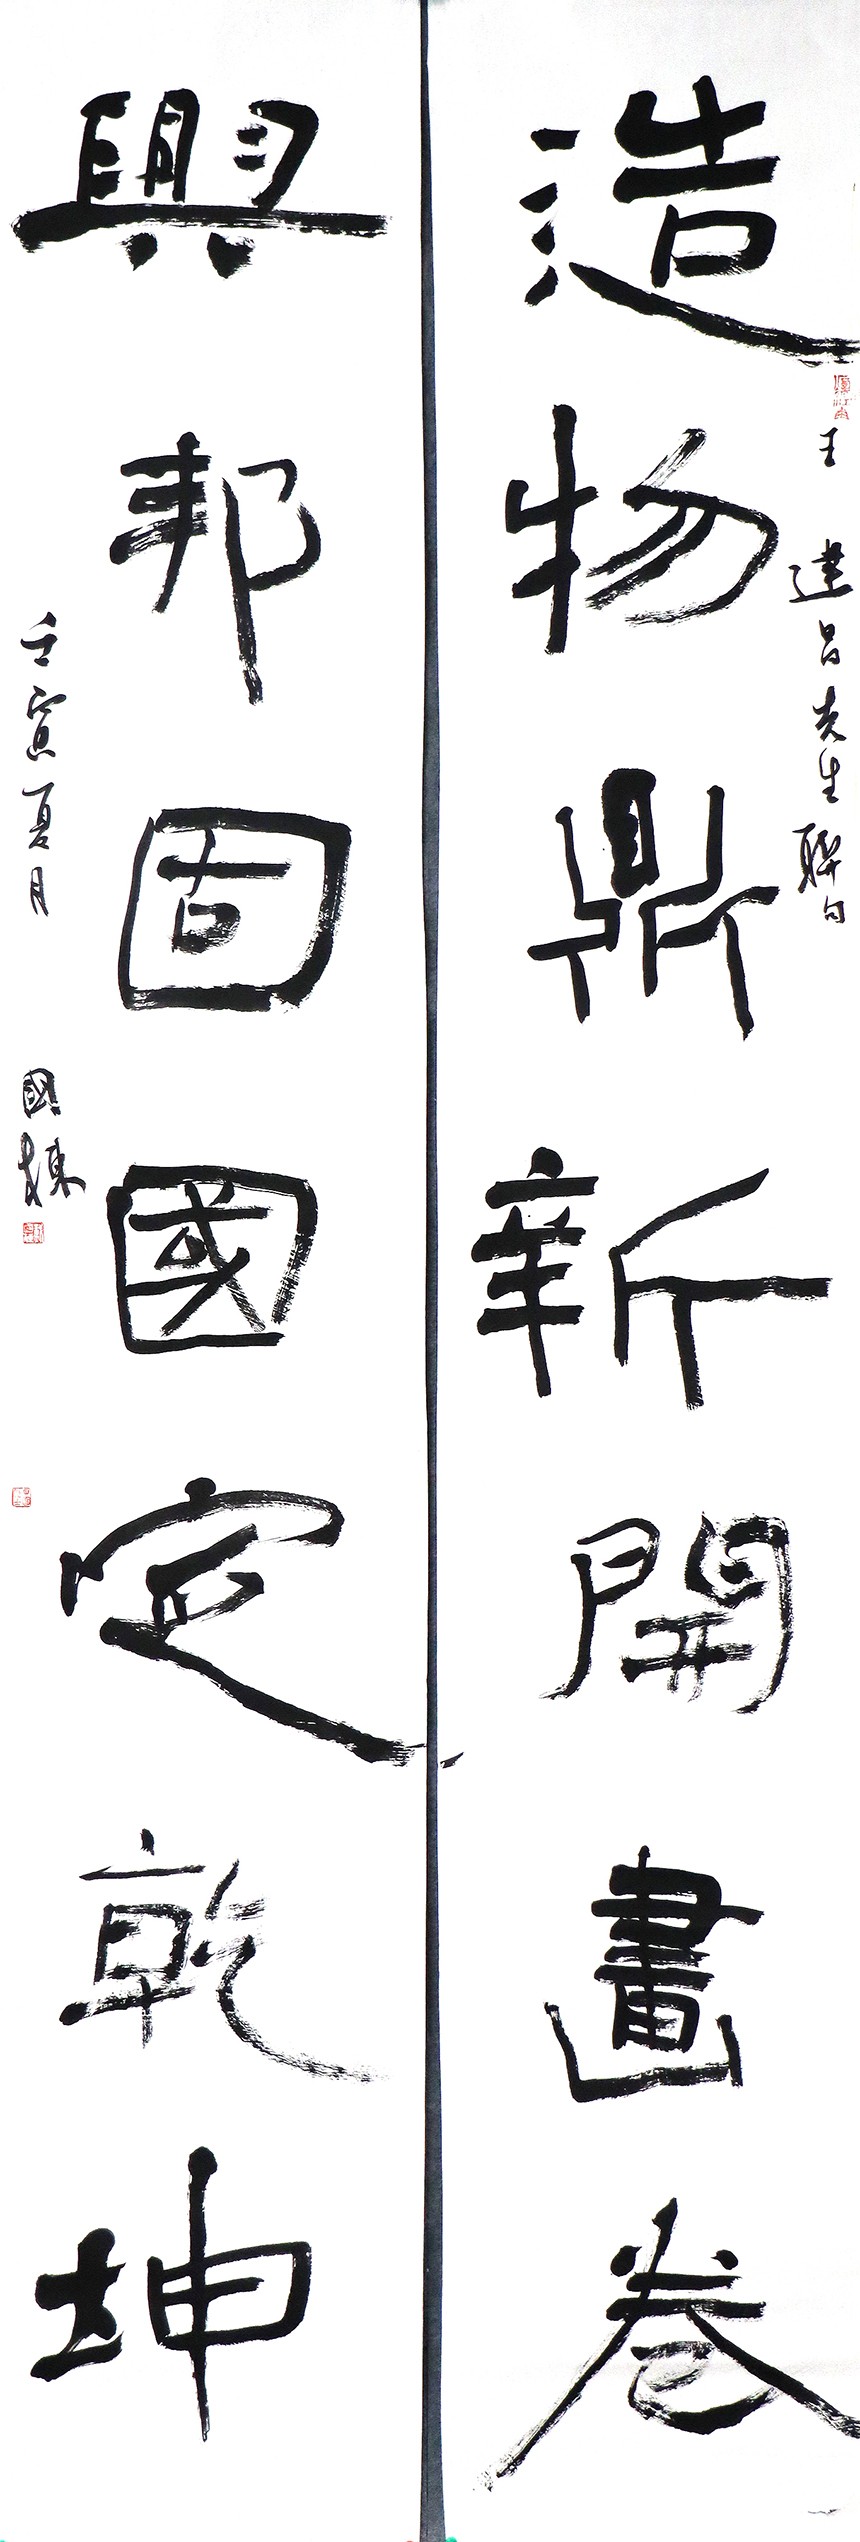 造物鼎新開畫卷
王建呂先生聯句
興邦固國定乾坤
壬寅夏月
國棟